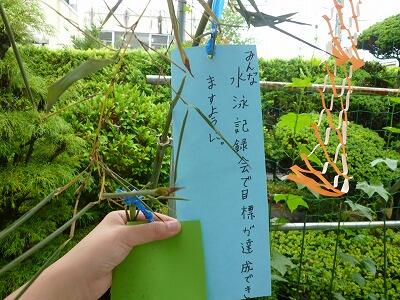 みんな水泳記録会で目標が達成でき
ますように。